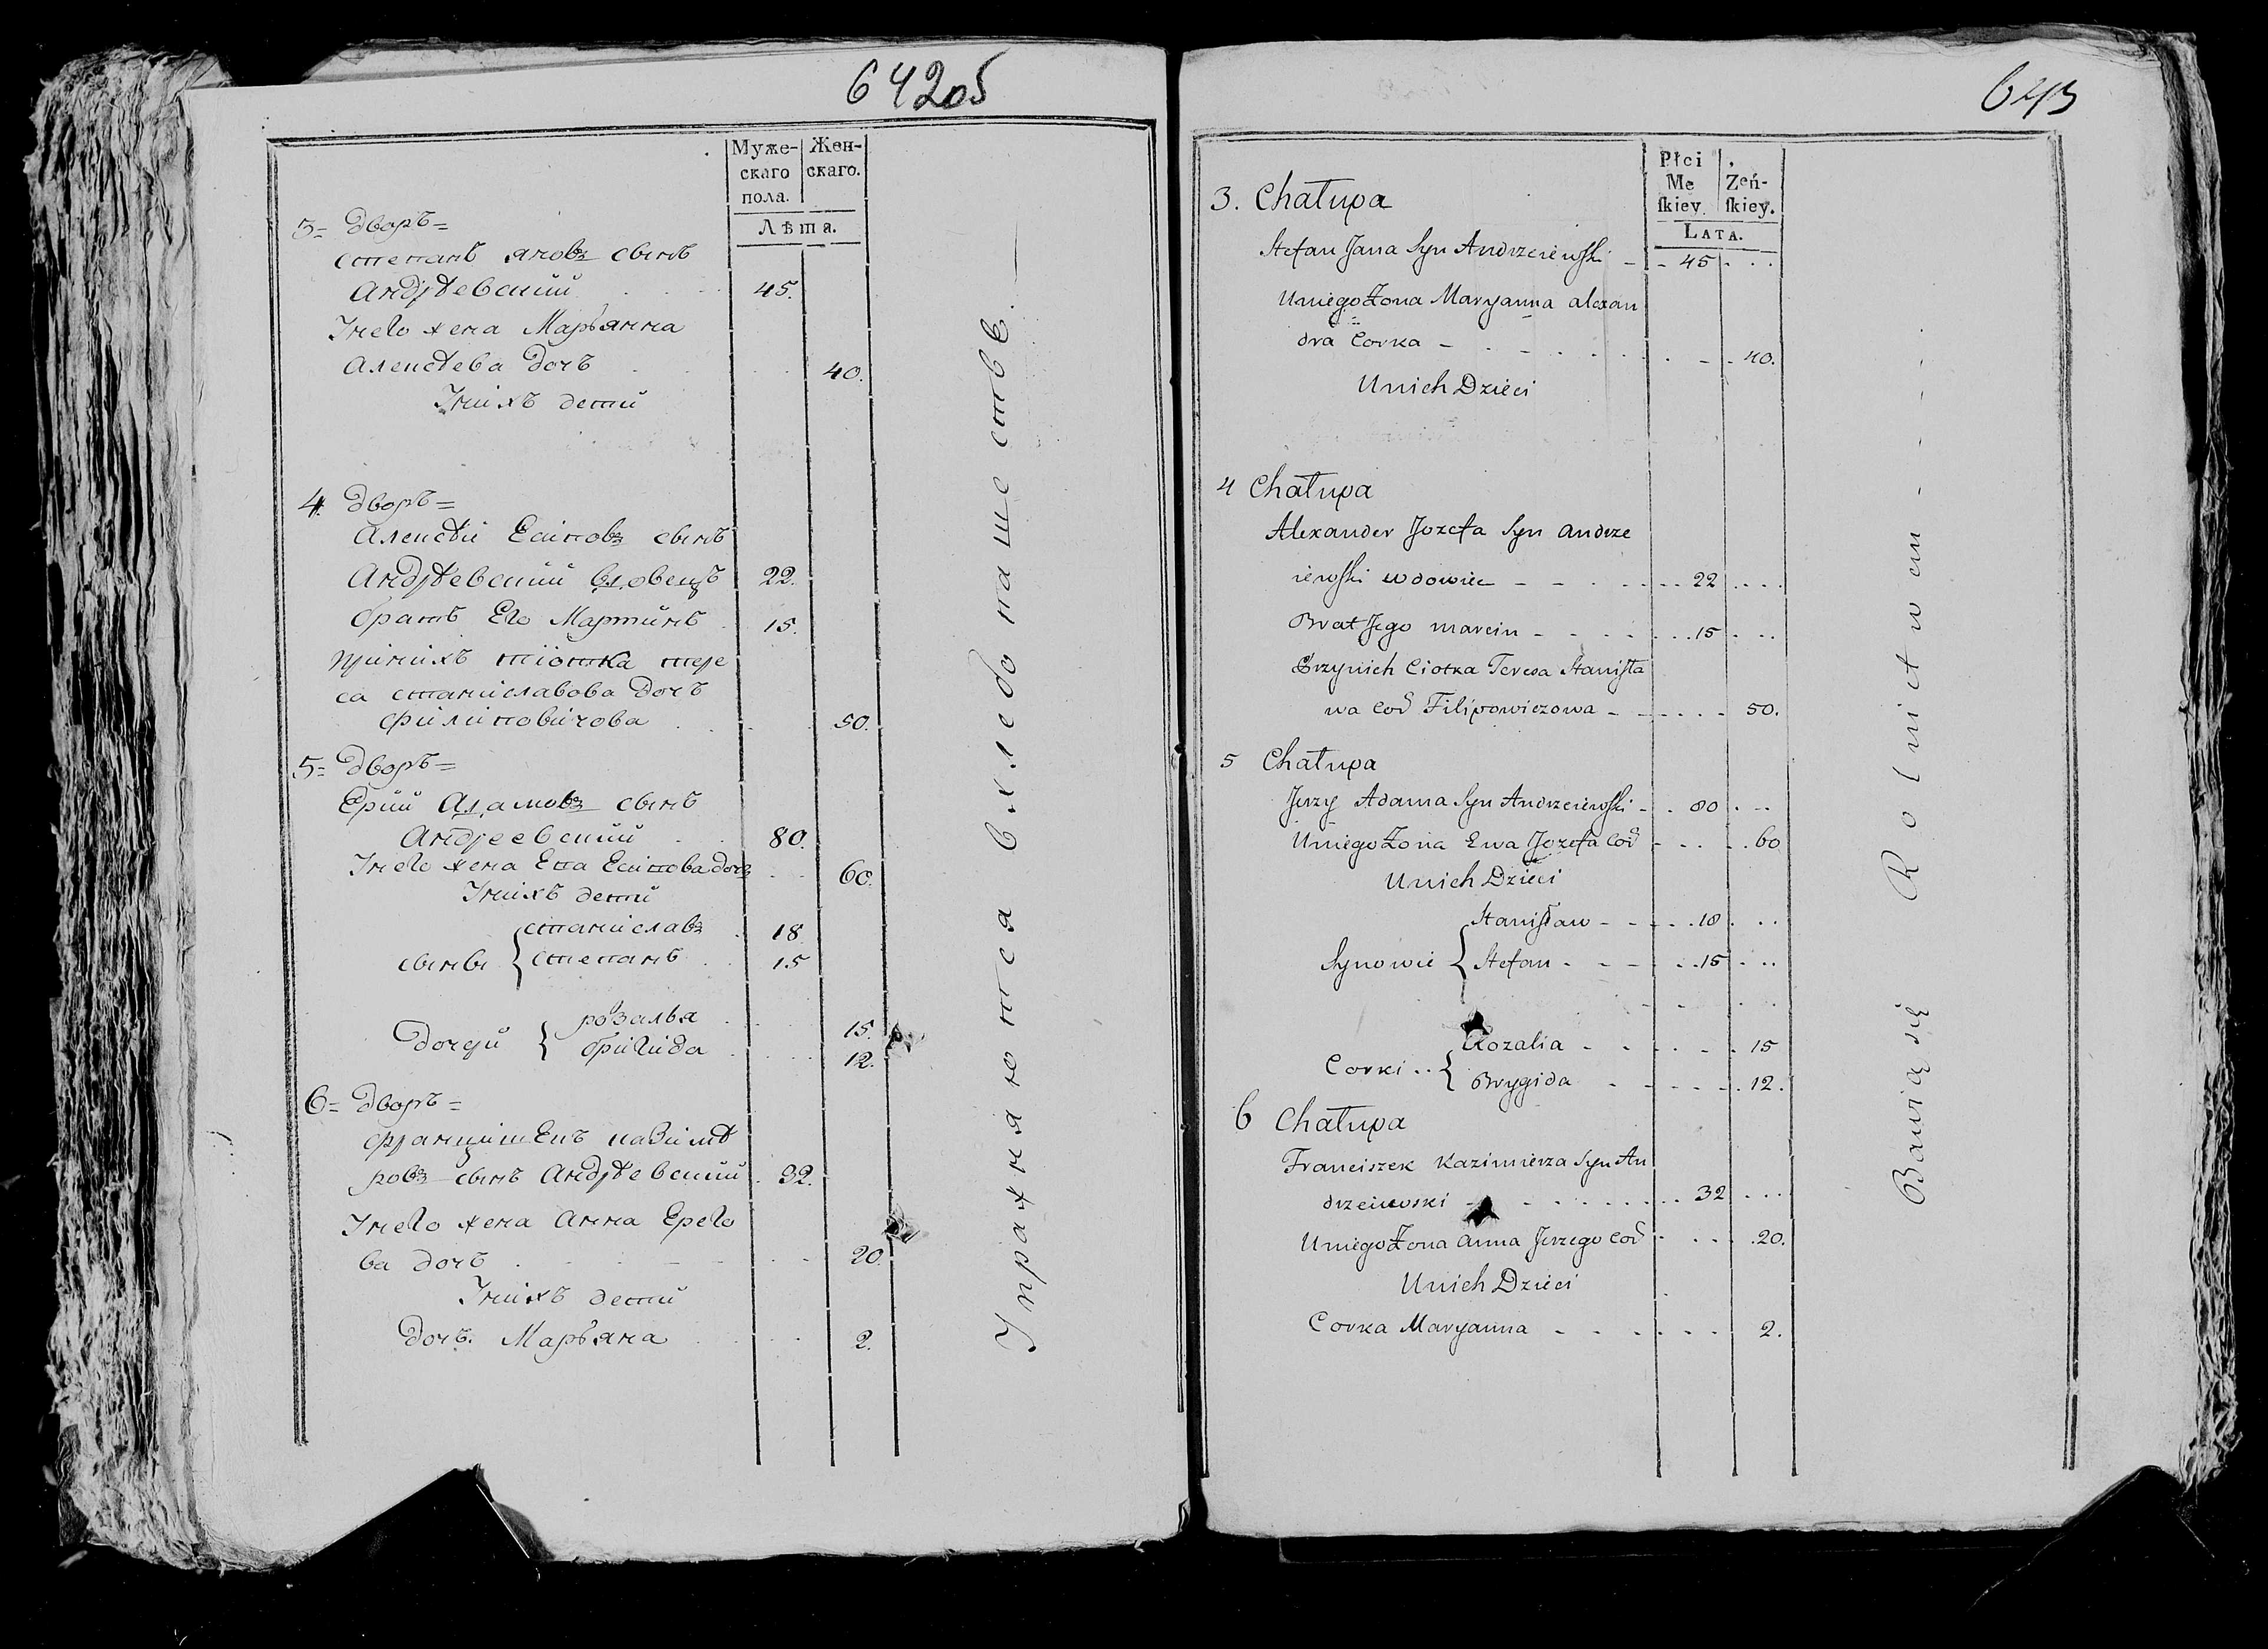 64205
Муже-
скаго
пола.
Жен-
скаго.
Лѣта.
3= Дворъ=
степанъ яновъ сынъ
Андрѣевский 45.
Унего жена Марьянна
Алексѣева Дочь 40.
Унихъ дети
4. Дворъ=
Алексѣй Есиповъ сынъ
Андрѣевский вдовецъ 22.
братъ Его Мартинъ 15.
принихъ тіотка тере
са станиславова Дочь
филиповичова 50.
5= Дворъ=
Ерий Адамовъ сынъ
Андреевский 80.
Унего жена Ева Есипова дочь 60.
Унихъ дети
сыны { станиславъ 18
степанъ 15
Дочери { розалья 15.
бригида 12.
6= Дворъ=
францишекъ казимѣ
ровъ сынъ Андрѣевский 32.
Унего жена Анна Ерего
ва дочь 20.
Унихъ дети
Дочь. Марьяна 2.
Упражняются вхлебопашестве.
643
Płci
Me
ſkiey.
Zeń-
ſkiey.
LATA.
3. Chałupa
Stefan Jana Syn Andrzeiewski 45
Uniego Żona Maryanna alexan
dra Corka 40.
Unich Dzieci
4 Chałupa
Alexander Jozefa Syn andrze
iewski wdowiec 22
Brat Jego marcin 15
Przynich Ciotka Teresa Stanisła
wa Cor Filipowiczowa 50.
5 Chałupa
Jerzy Adama Syn Andrzeiewski 80
Uniego Żona Ewa Jozefa Cor 60
Unich Dzieci
Synowie { Stanisław 18
Stefan 15
Corki { Rozalia 15
Brygida 12.
6 Chałupa
Franciszek Kazimierza Syn An
drzeiewski 32
Uniego Żona anna Jerzego Cor 20.
Unich Dzieci
Corka Maryanna 2.
Bawią się Rolnictwem